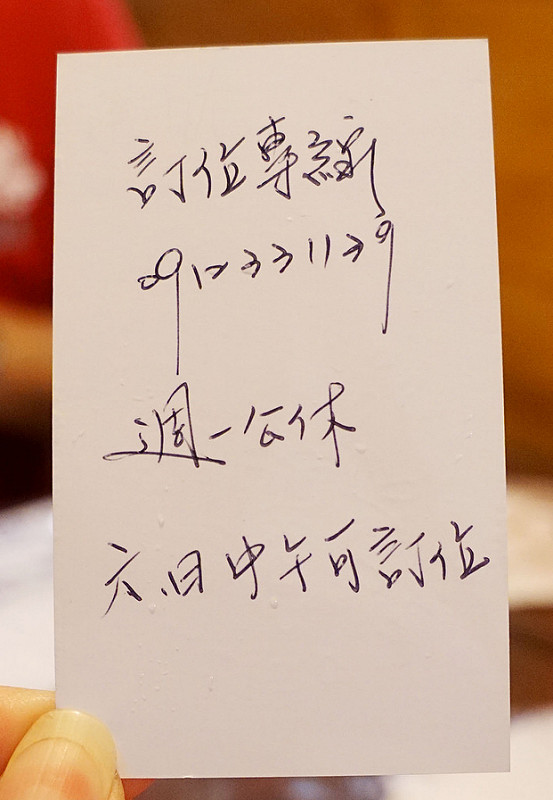 訂位專線
0912331139
週一公休
六.日中午可訂位